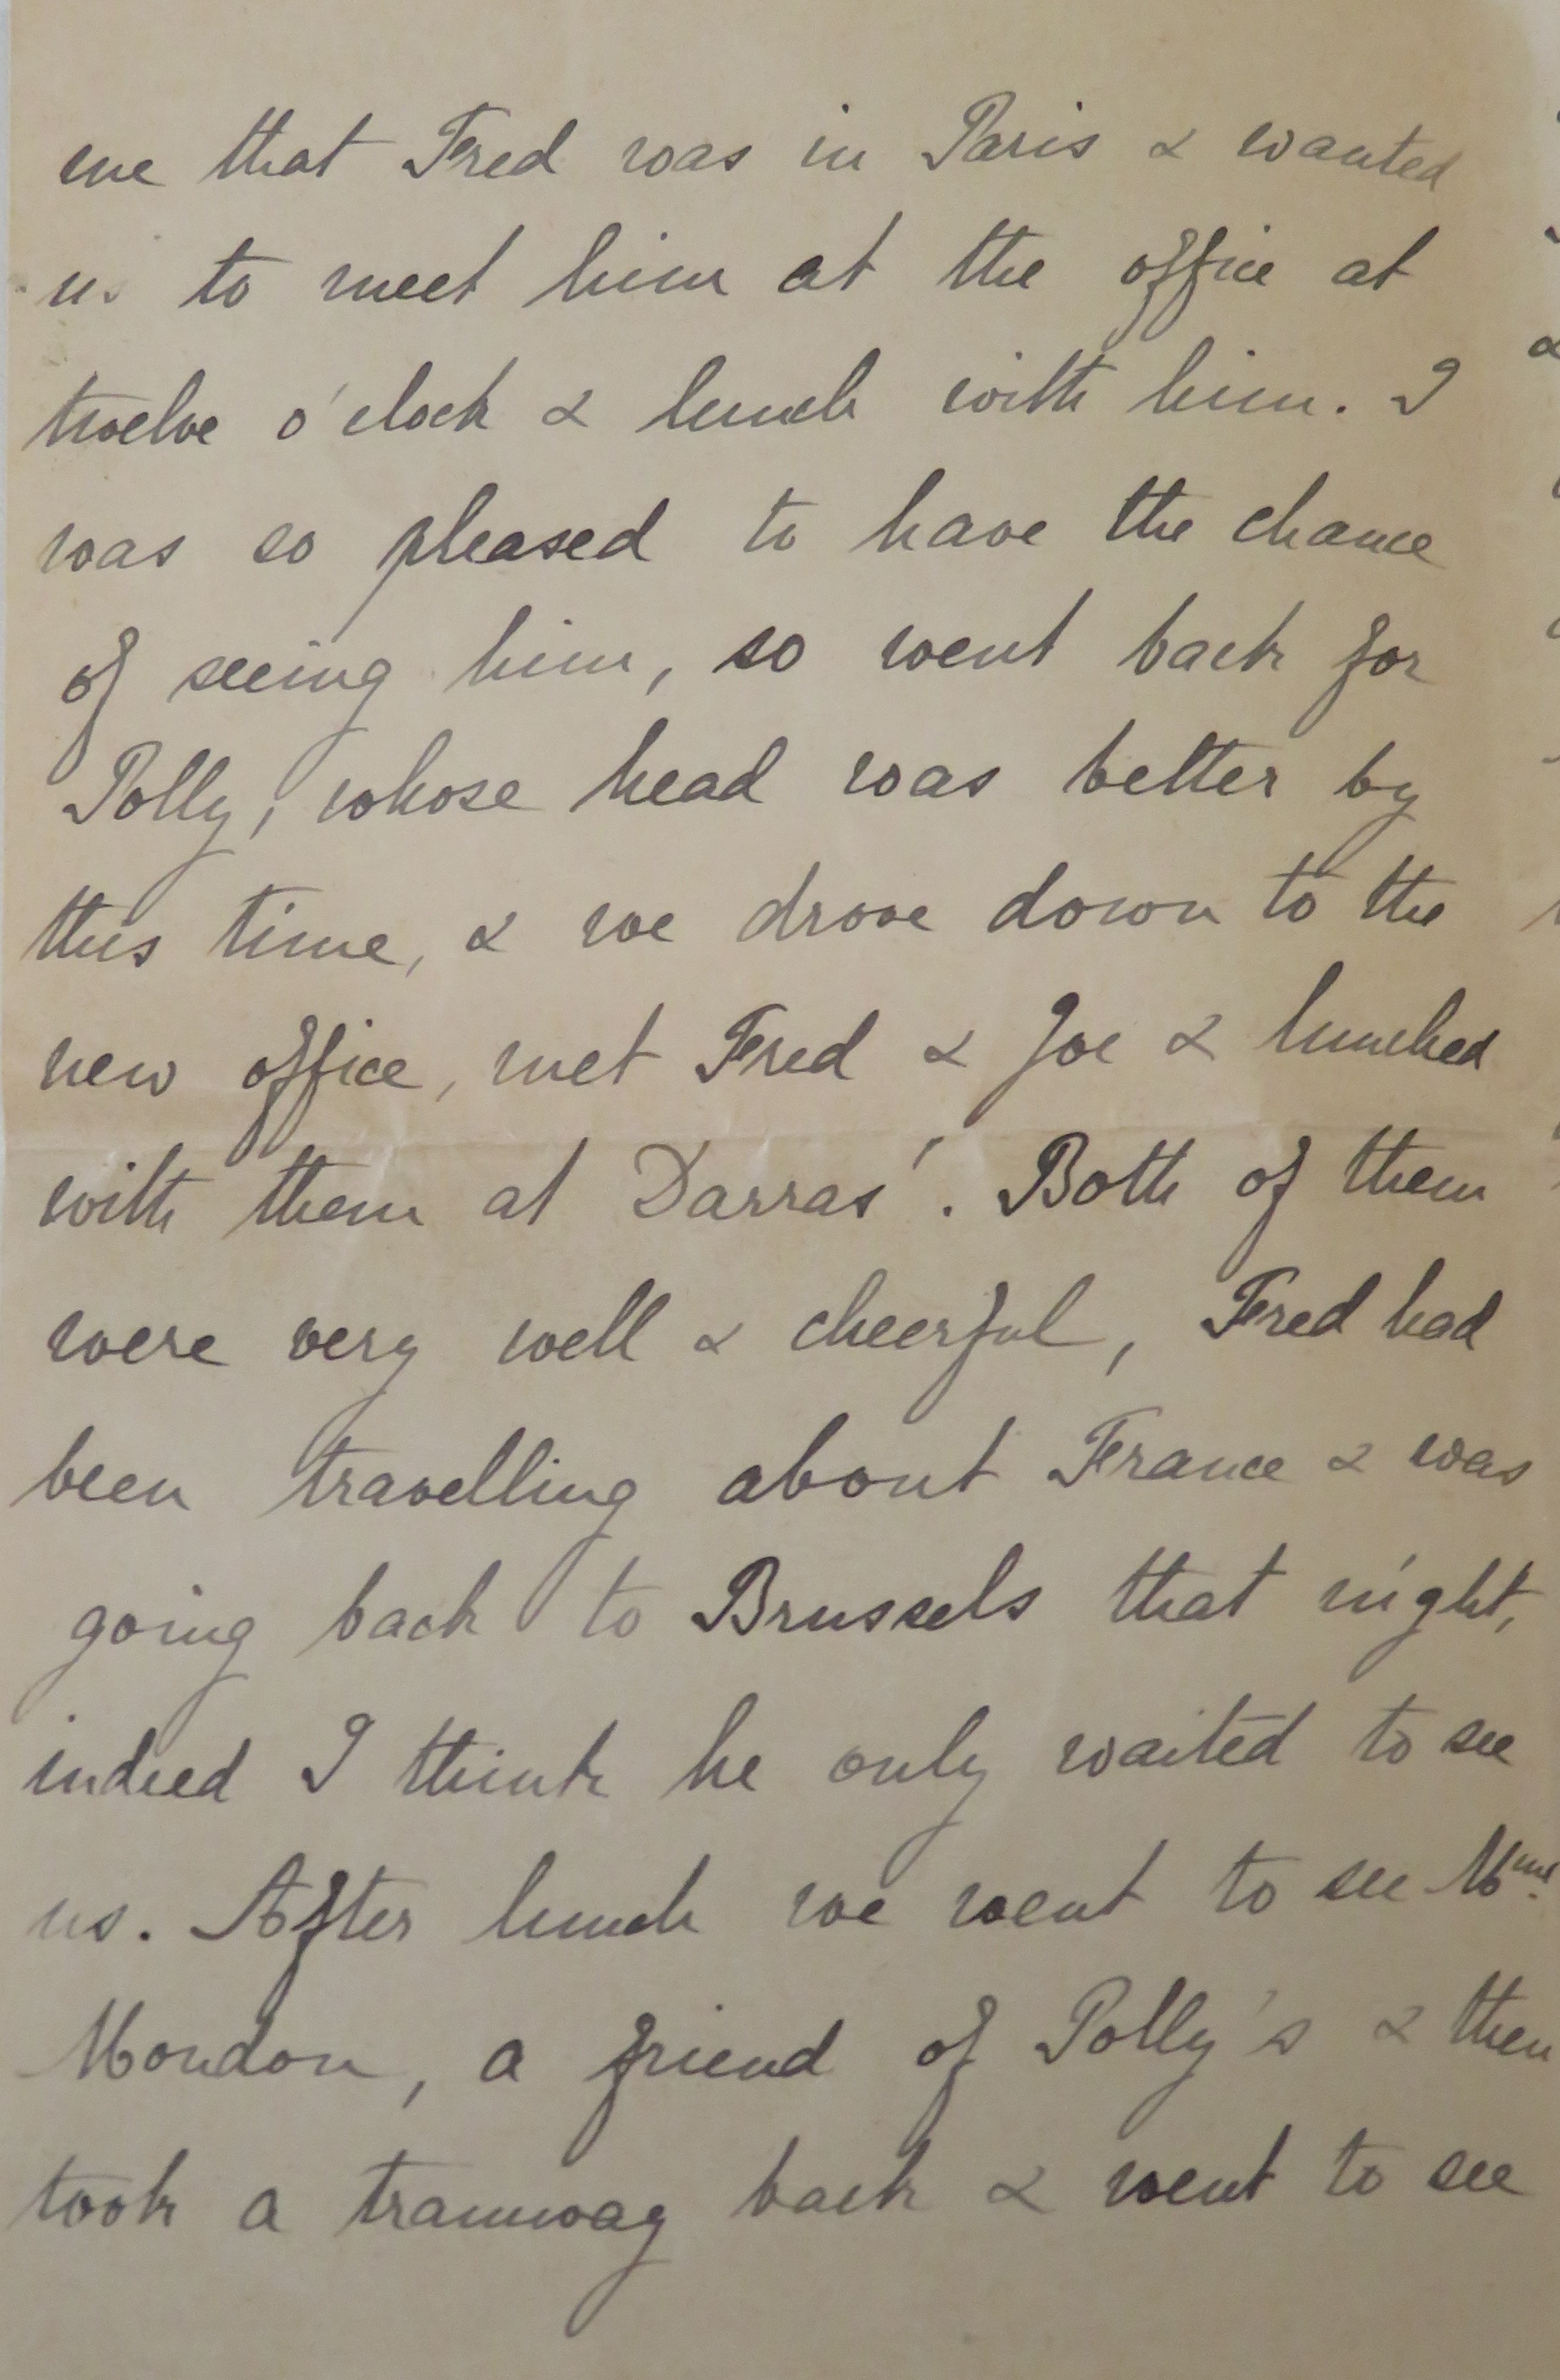 me that Fred was in Paris & wanted
us to meet him at the office at
twelve o'clock & lunch with him. I
was so pleased to have the chance
of seeing him, so went back for
Polly, whose head was better by
this time, & we drove down to the
new office, met Fred & Joe & lunched
with them at Darras'. Both of them
were very well & cheerful, Fred had
been travelling about France & was
going back to Brussels that night,
indeed I think he only waited to see
us. After lunch we went to see Mme.
Mondon, a friend of Polly's & then
took a tramway back & went to see